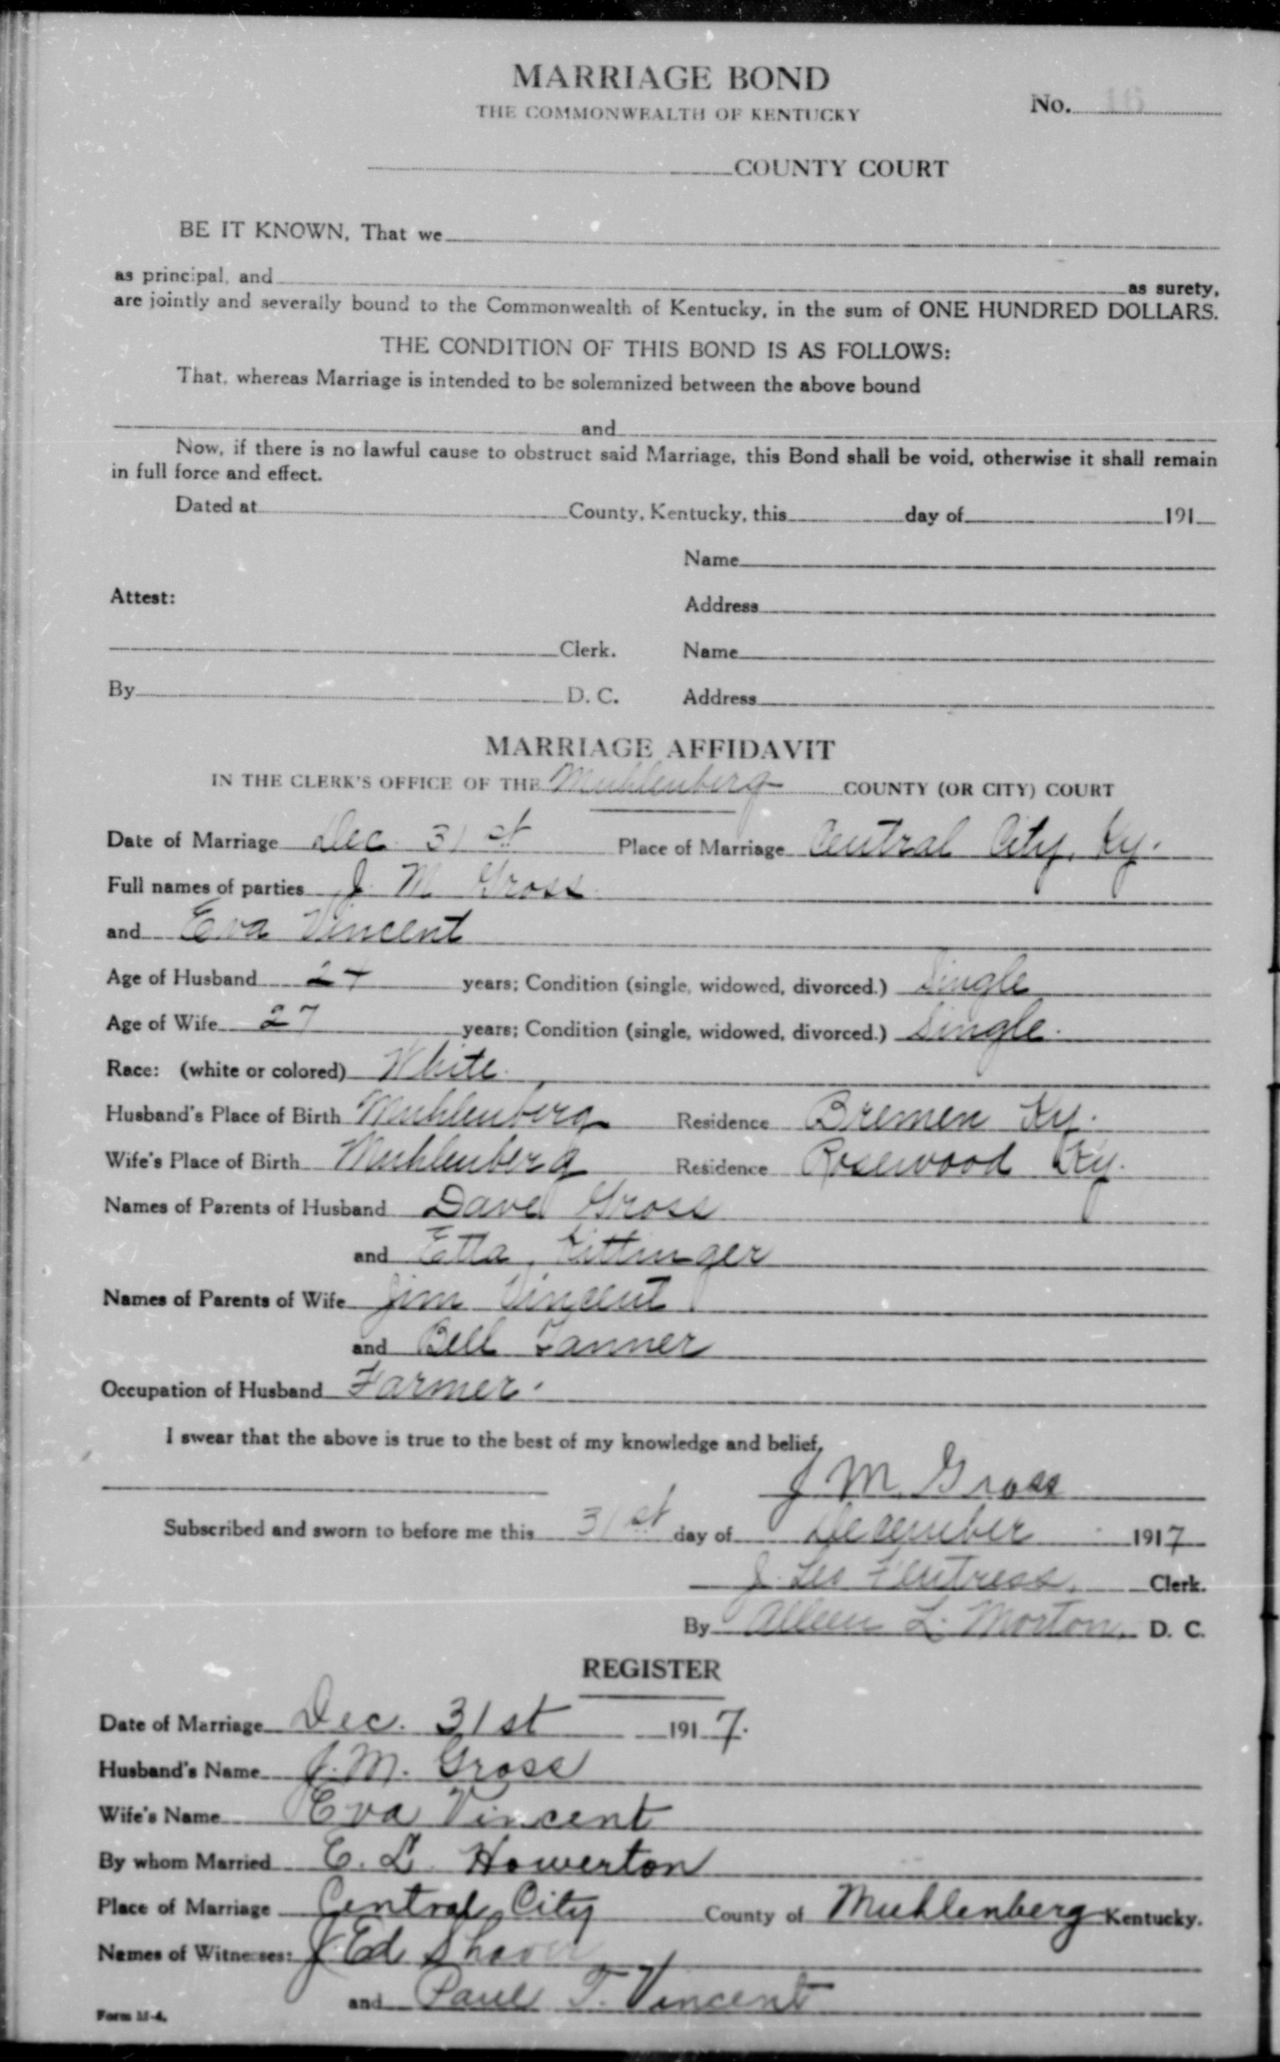 MARRIAGE BOND
THE COMMONWEALTH OF KENTUCKY
No. 16
COUNTY COURT
BE IT KNOWN, That we
as principal, and as surety,
are jointly and severally bound to the Commonwealth of Kentucky, in the sum of ONE HUNDRED DOLLARS.
THE CONDITION OF THIS BOND IS AS FOLLOWS:
That, whereas Marriage is intended to be solemnized between the above bound
and
Now, if there is no lawful cause to obstruct said Marriage, this Bond shall be void, otherwise it shall remain
in full force and effect.
Dated at County, Kentucky, this day of 191
Name
Attest:
Address
Clerk. Name
By D. C. Address
MARRIAGE AFFIDAVIT
IN THE CLERK'S OFFICE OF THE Muhlenberg COUNTY (OR CITY) COURT
Date of Marriage Dec. 31st Place of Marriage Central City, Ky.
Full names of parties J. M Gross
and Eva Vincent
Age of Husband 24 years; Condition (single, widowed, divorced.) Single
Age of Wife 27 years; Condition (single, widowed, divorced.) Single.
Race: (white or colored) White.
Husband's Place of Birth Muhlenberg Residence Bremen Ky.
Wife's Place of Birth Muhlenberg Residence Rosewood Ky.
Names of Parents of Husband Dave Gross
and Etta Kittinger
Names of Parents of Wife Jim Vincent
and Bell Tanner
Occupation of Husband Farmer.
I swear that the above is true to the best of my knowledge and belief.
J M. Gross
Subscribed and sworn to before me this 31st day of December 1917
J. Les Fentress, Clerk.
By Alleen L. Morton, D. C.
REGISTER
Date of Marriage Dec. 31st 1917.
Husband's Name J. M. Gross
Wife's Name Eva Vincent
By whom Married E. L. Howerton
Place of Marriage Central City County of Muhlenberg Kentucky.
Names of Witnesses: J Ed Shaver
and Paul T. Vincent
Form M-4.